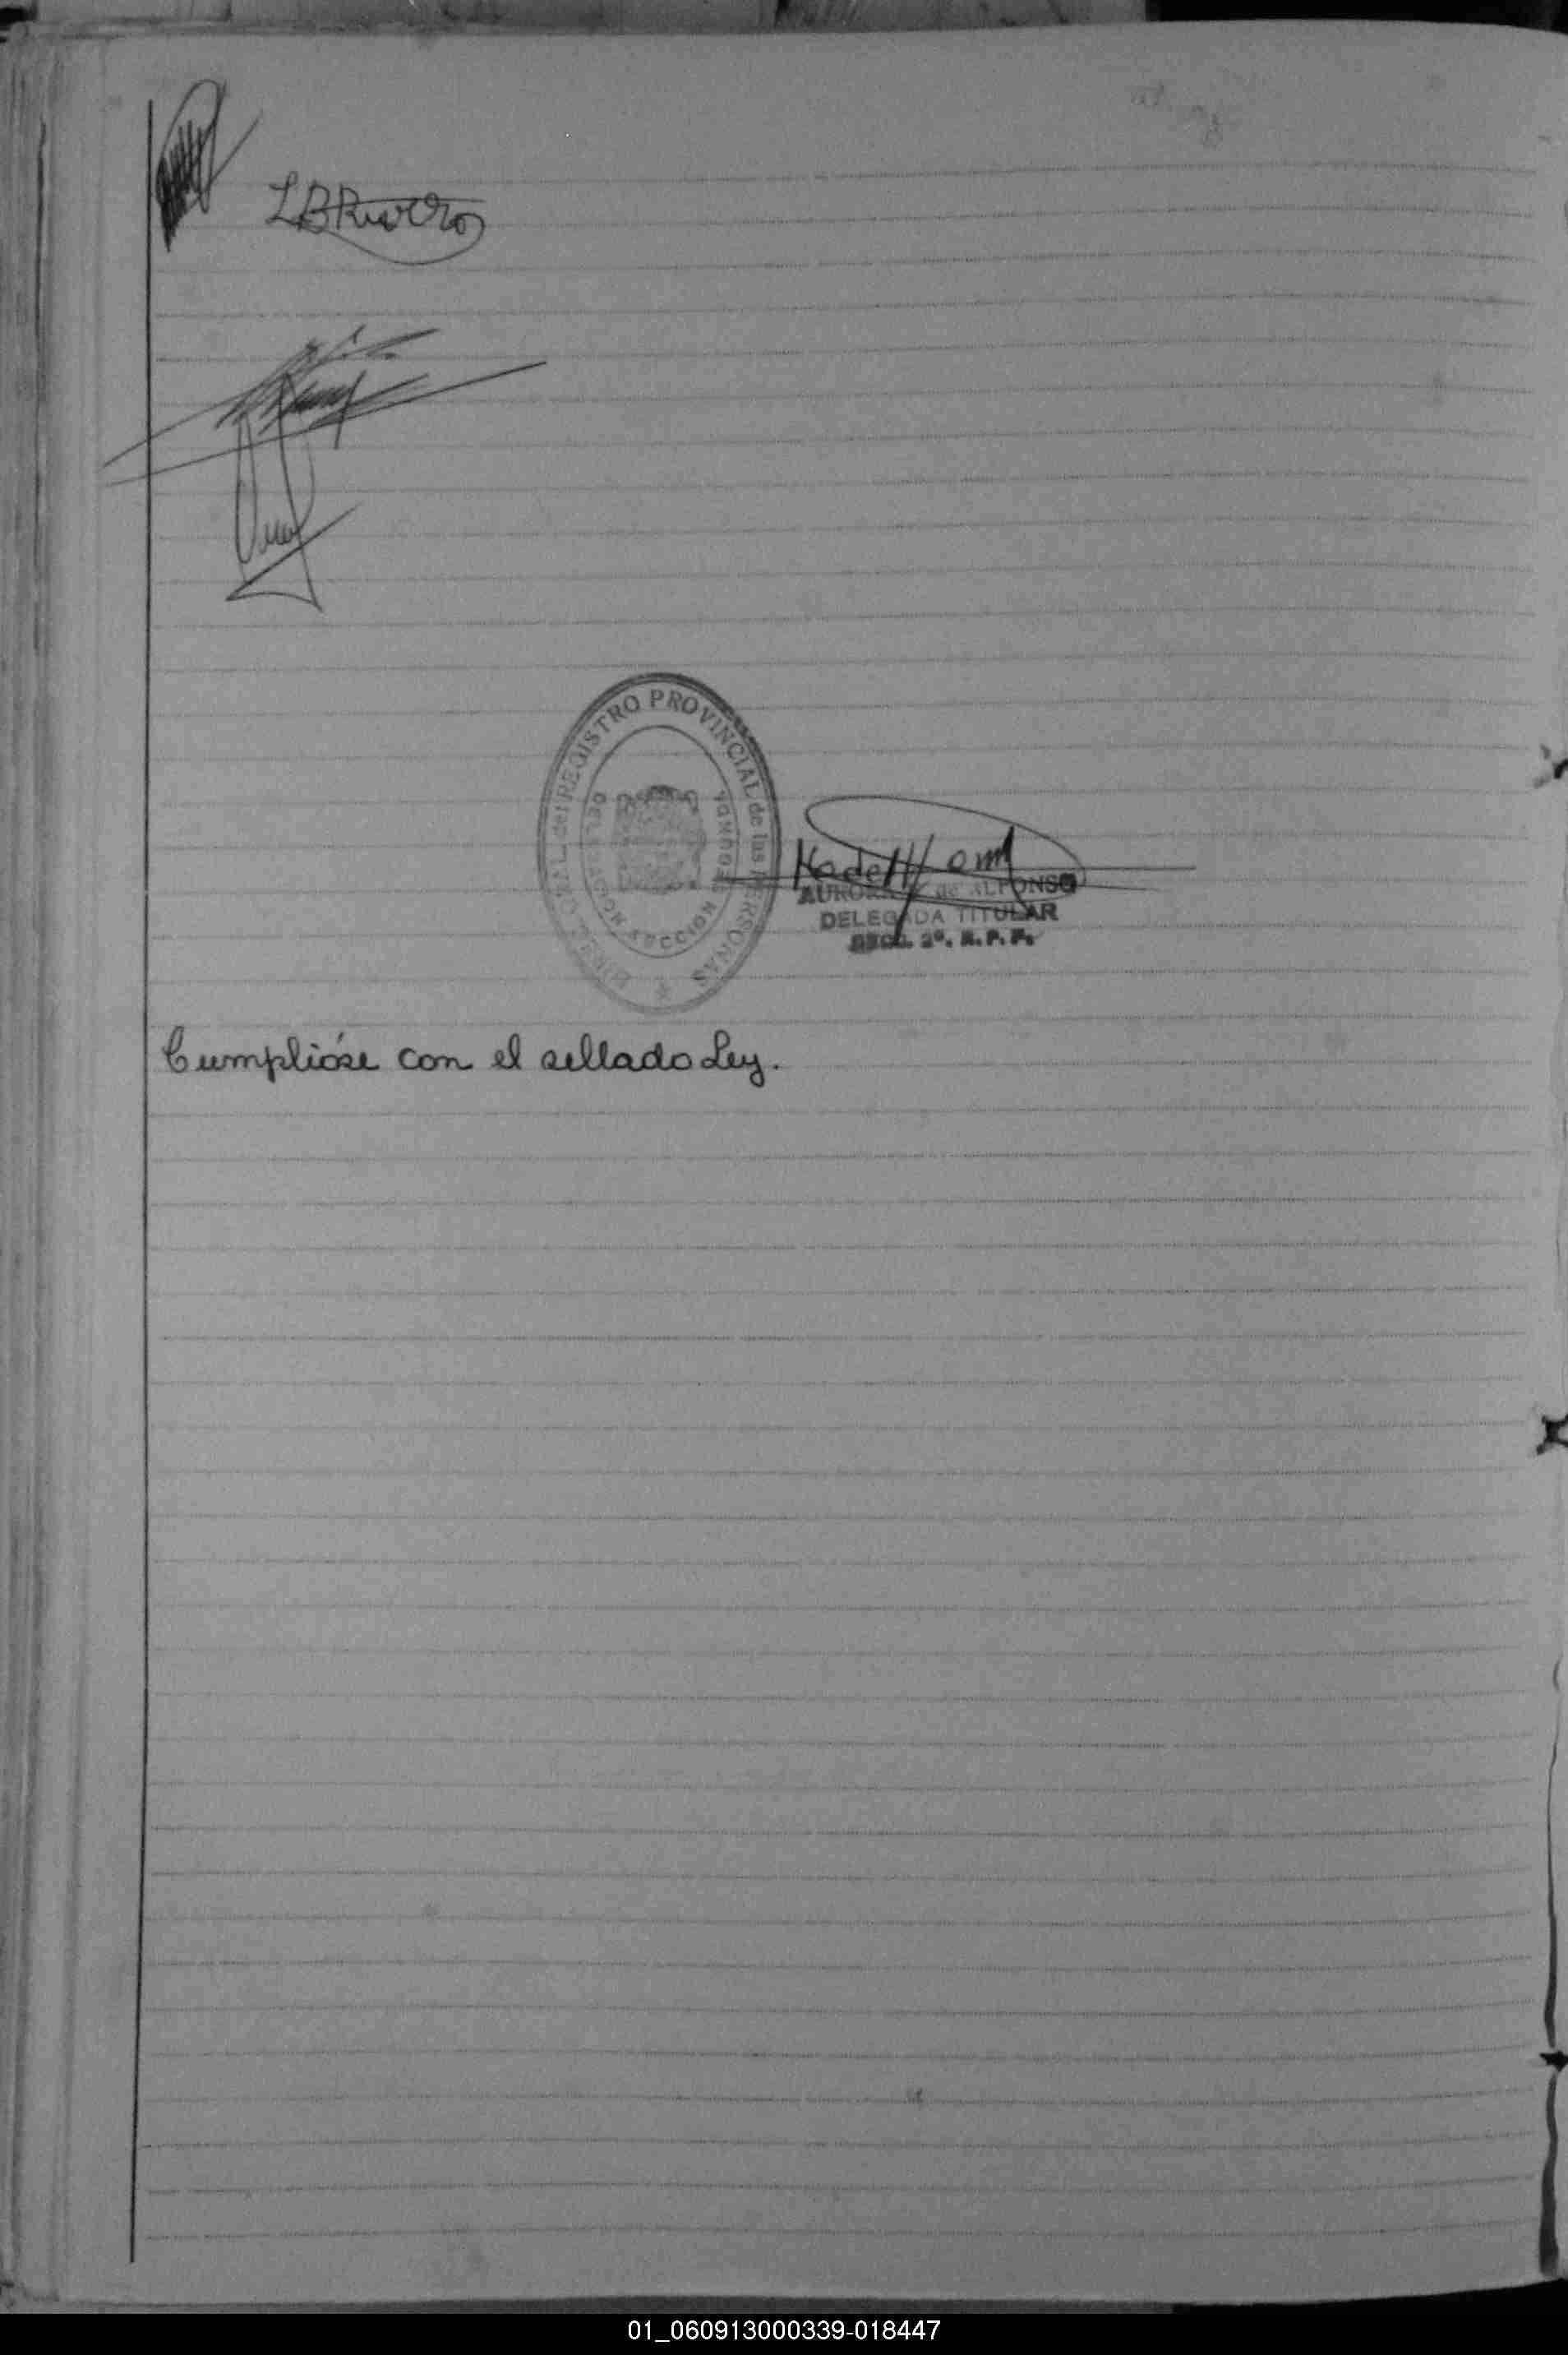 LBRivero
REGISTRO PROVINCIAL de las PERSONAS
SECCION SEGUNDA
AURORA de ALFONSO
DELEGADA TITULAR
SECC. 2ª. R. P. P.
Cumplióse con el sellado Ley.
01_060913000339-018447